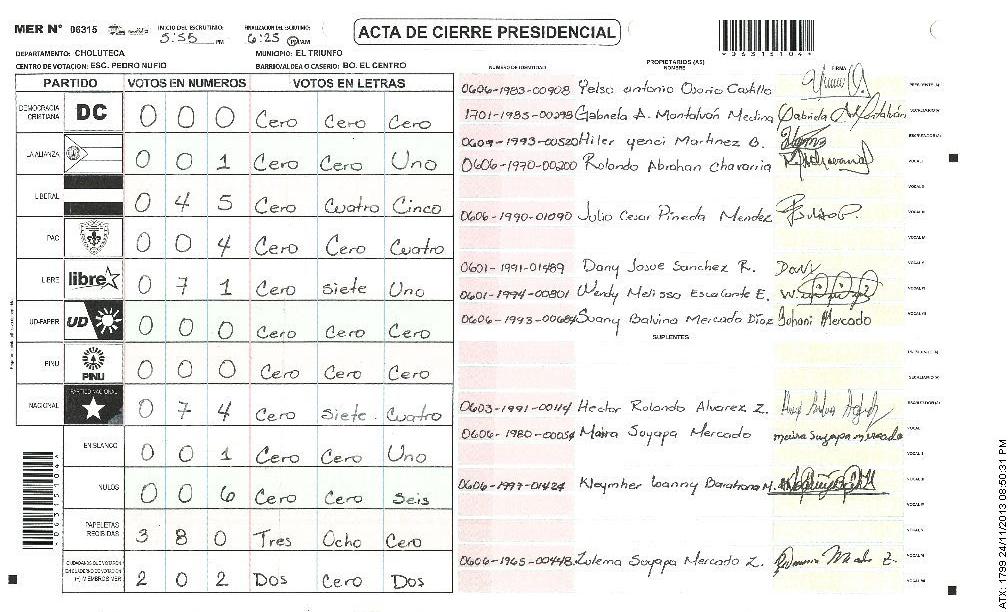 MER Nº 06315
INICIO DEL ESCRUTINIO: 5:55 PM
FINALIZACION DEL ESCRUTINIO: 6:25 PM
ACTA DE CIERRE PRESIDENCIAL
*06315104*
DEPARTAMENTO: CHOLUTECA
MUNICIPIO: EL TRIUNFO
CENTRO DE VOTACION: ESC. PEDRO NUFIO
BARRIO/ALDEA O CASERIO: BO. EL CENTRO
PARTIDO VOTOS EN NUMEROS VOTOS EN LETRAS
DEMOCRACIA CRISTIANA DC 0 0 0 Cero Cero Cero
LA ALIANZA 0 0 1 Cero Cero Uno
LIBERAL 0 4 5 Cero Cuatro Cinco
PAC 0 0 4 Cero Cero Cuatro
LIBRE libre 0 7 1 Cero Siete Uno
UD-FAPER UD 0 0 0 Cero Cero Cero
PINU PINU 0 0 0 Cero Cero Cero
NACIONAL PARTIDO NACIONAL 0 7 4 Cero Siete Cuatro
EN BLANCO 0 0 1 Cero Cero Uno
NULOS 0 0 6 Cero Cero Seis
PAPELETAS RECIBIDAS 3 8 0 Tres Ocho Cero
CIUDADANOS QUE VOTARON (+) MIEMBROS MER 2 0 2 Dos Cero Dos
*06315104*
NUMERO DE IDENTIDAD PROPIETARIOS (AS) NOMBRE FIRMA
0606-1983-00908 Pelso antonio Osorio Castillo
1701-1985-00298 Gabriela A. Montalván Medina Gabriela Montalván
0609-1993-00520 Hiler yenci Martinez B.
0606-1970-00200 Rolando Abrahan Chavarria
0606-1990-01090 Julio Cesar Pineda Mendez
0601-1991-01489 Dany Josue Sanchez R. Dany
0601-1994-00801 Wendy Melissa Escalante E.
0606-1993-00684 Suany Balvina Mercado Díaz Mercado
SUPLENTES
0603-1991-00114 Hector Rolando Alvarez Z.
0606-1980-00054 Maira Suyapa Mercado maira Suyapa mercado
0606-1997-01424 Kleymher Ioanny Barahona M.
0606-1965-00448 Zulema Suyapa Mercado Z.
ATX: 1799 24/11/2013 08:50:31 PM